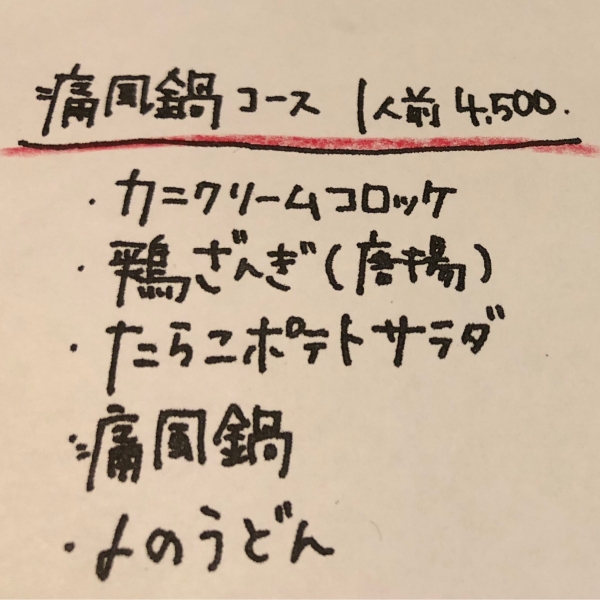 痛風鍋コース 1人前 4,500.
・カニクリームコロッケ
・鶏ざんぎ(唐揚)
・たらこポテトサラダ
・痛風鍋
・〆のうどん